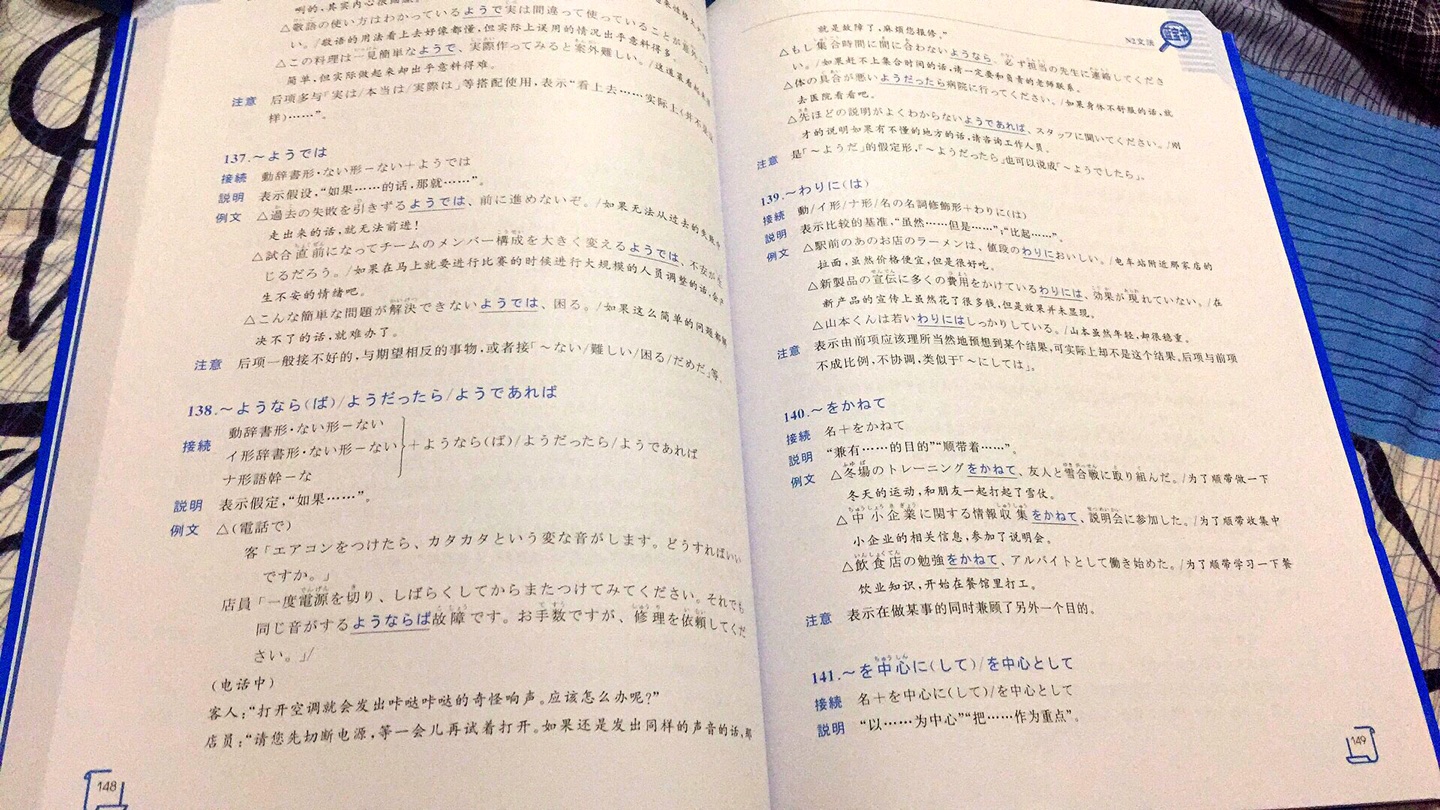 咧的,其实内心很
△敬語の使い方はわかっているようで実は間違って使っていることが
い。/敬语的用法看上去好像都懂,但实际上误用的情况出乎意料得多。
△この料理は一見簡単なようで、実際作ってみると案外難しい。/这道菜看起来
简单,但实际做起来却出乎意料得难。
注意 后项多与「実は/本当は/実際は」等搭配使用,表示“看上去……实际上(并不
样)……”。
137.~ようでは
接続 動辞書形·ない形-ない+ようでは
説明 表示假设,“如果……的话,那就……”。
例文 △過去の失敗を引きずるようでは、前に進めないぞ。/如果无法从过去的失败中
走出来的话,就无法前进!
△試合直前になってチームのメンバー構成を大きく変えるようでは、不安が
じるだろう。/如果在马上就要进行比赛的时候进行大规模的人员调整的话,会
生不安的情绪吧。
△こんな簡単な問題が解決できないようでは、困る。/如果这么简单的问题都解
决不了的话,就难办了。
注意 后项一般接不好的,与期望相反的事物,或者接「~ない/難しい/困る/だめだ」等。
138.~ようなら(ば)/ようだったら/ようであれば
接続 動辞書形·ない形-ない
イ形辞書形·ない形-ない
ナ形語幹-な
+ようなら(ば)/ようだったら/ようであれば
説明 表示假定,“如果……”。
例文 △(電話で)
客「エアコンをつけたら、カタカタという変な音がします。どうすればいい
ですか。」
店員「一度電源を切り、しばらくしてからまたつけてみてください。それでも
同じ音がするようならば故障です。お手数ですが、修理を依頼してくだ
さい。」/
(电话中)
客人:“打开空调就会发出咔哒咔哒的奇怪响声。应该怎么办呢?”
店员:“请您先切断电源,等一会儿再试着打开。如果还是发出同样的声音的话,那
148
N2文法
蓝宝书
就是故障了,麻烦您报修。”
△もし集合時間に間に合わないようなら、必ず担当の先生に連絡してくださ
い。/如果赶不上集合时间的话,请一定要和负责的老师联系。
△体の具合が悪いようだったら病院に行ってください。/如果身体不舒服的话,就
去医院看看吧。
△先ほどの説明がよくわからないようであれば、スタッフに聞いてください。/刚
才的说明如果有不懂的地方的话,请咨询工作人员。
注意 是「~ようだ」的假定形,「~ようだったら」也可以说成「~ようでしたら」。
139.~わりに(は)
接続 動/イ形/ナ形/名の名詞修飾形+わりに(は)
説明 表示比较的基准,“虽然……但是……”,“比起……”。
例文 △駅前のあのお店のラーメンは、値段のわりにおいしい。/电车站附近那家店的
拉面,虽然价格便宜,但是很好吃。
△新製品の宣伝に多くの費用をかけているわりには、効果が現れていない。/在
新产品的宣传上虽然花了很多钱,但是效果并未显现。
△山本くんは若いわりにはしっかりしている。/山本虽然年轻,却很稳重。
注意 表示由前项应该理所当然地预想到某个结果,可实际上却不是这个结果。后项与前项
不成比例,不协调,类似于「~にしては」。
140.~をかねて
接続 名+をかねて
説明 “兼有……的目的”“顺带着……”。
例文 △冬場のトレーニングをかねて、友人と雪合戦に取り組んだ。/为了顺带做一下
冬天的运动,和朋友一起打起了雪仗。
△中小企業に関する情報収集をかねて、説明会に参加した。/为了顺带收集中
小企业的相关信息,参加了说明会。
△飲食店の勉強をかねて、アルバイトとして働き始めた。/为了顺带学习一下餐
饮业知识,开始在餐馆里打工。
注意 表示在做某事的同时兼顾了另外一个目的。
141.~を中心に(して)/を中心として
接続 名+を中心に(して)/を中心として
説明 “以……为中心”“把……作为重点”。
149